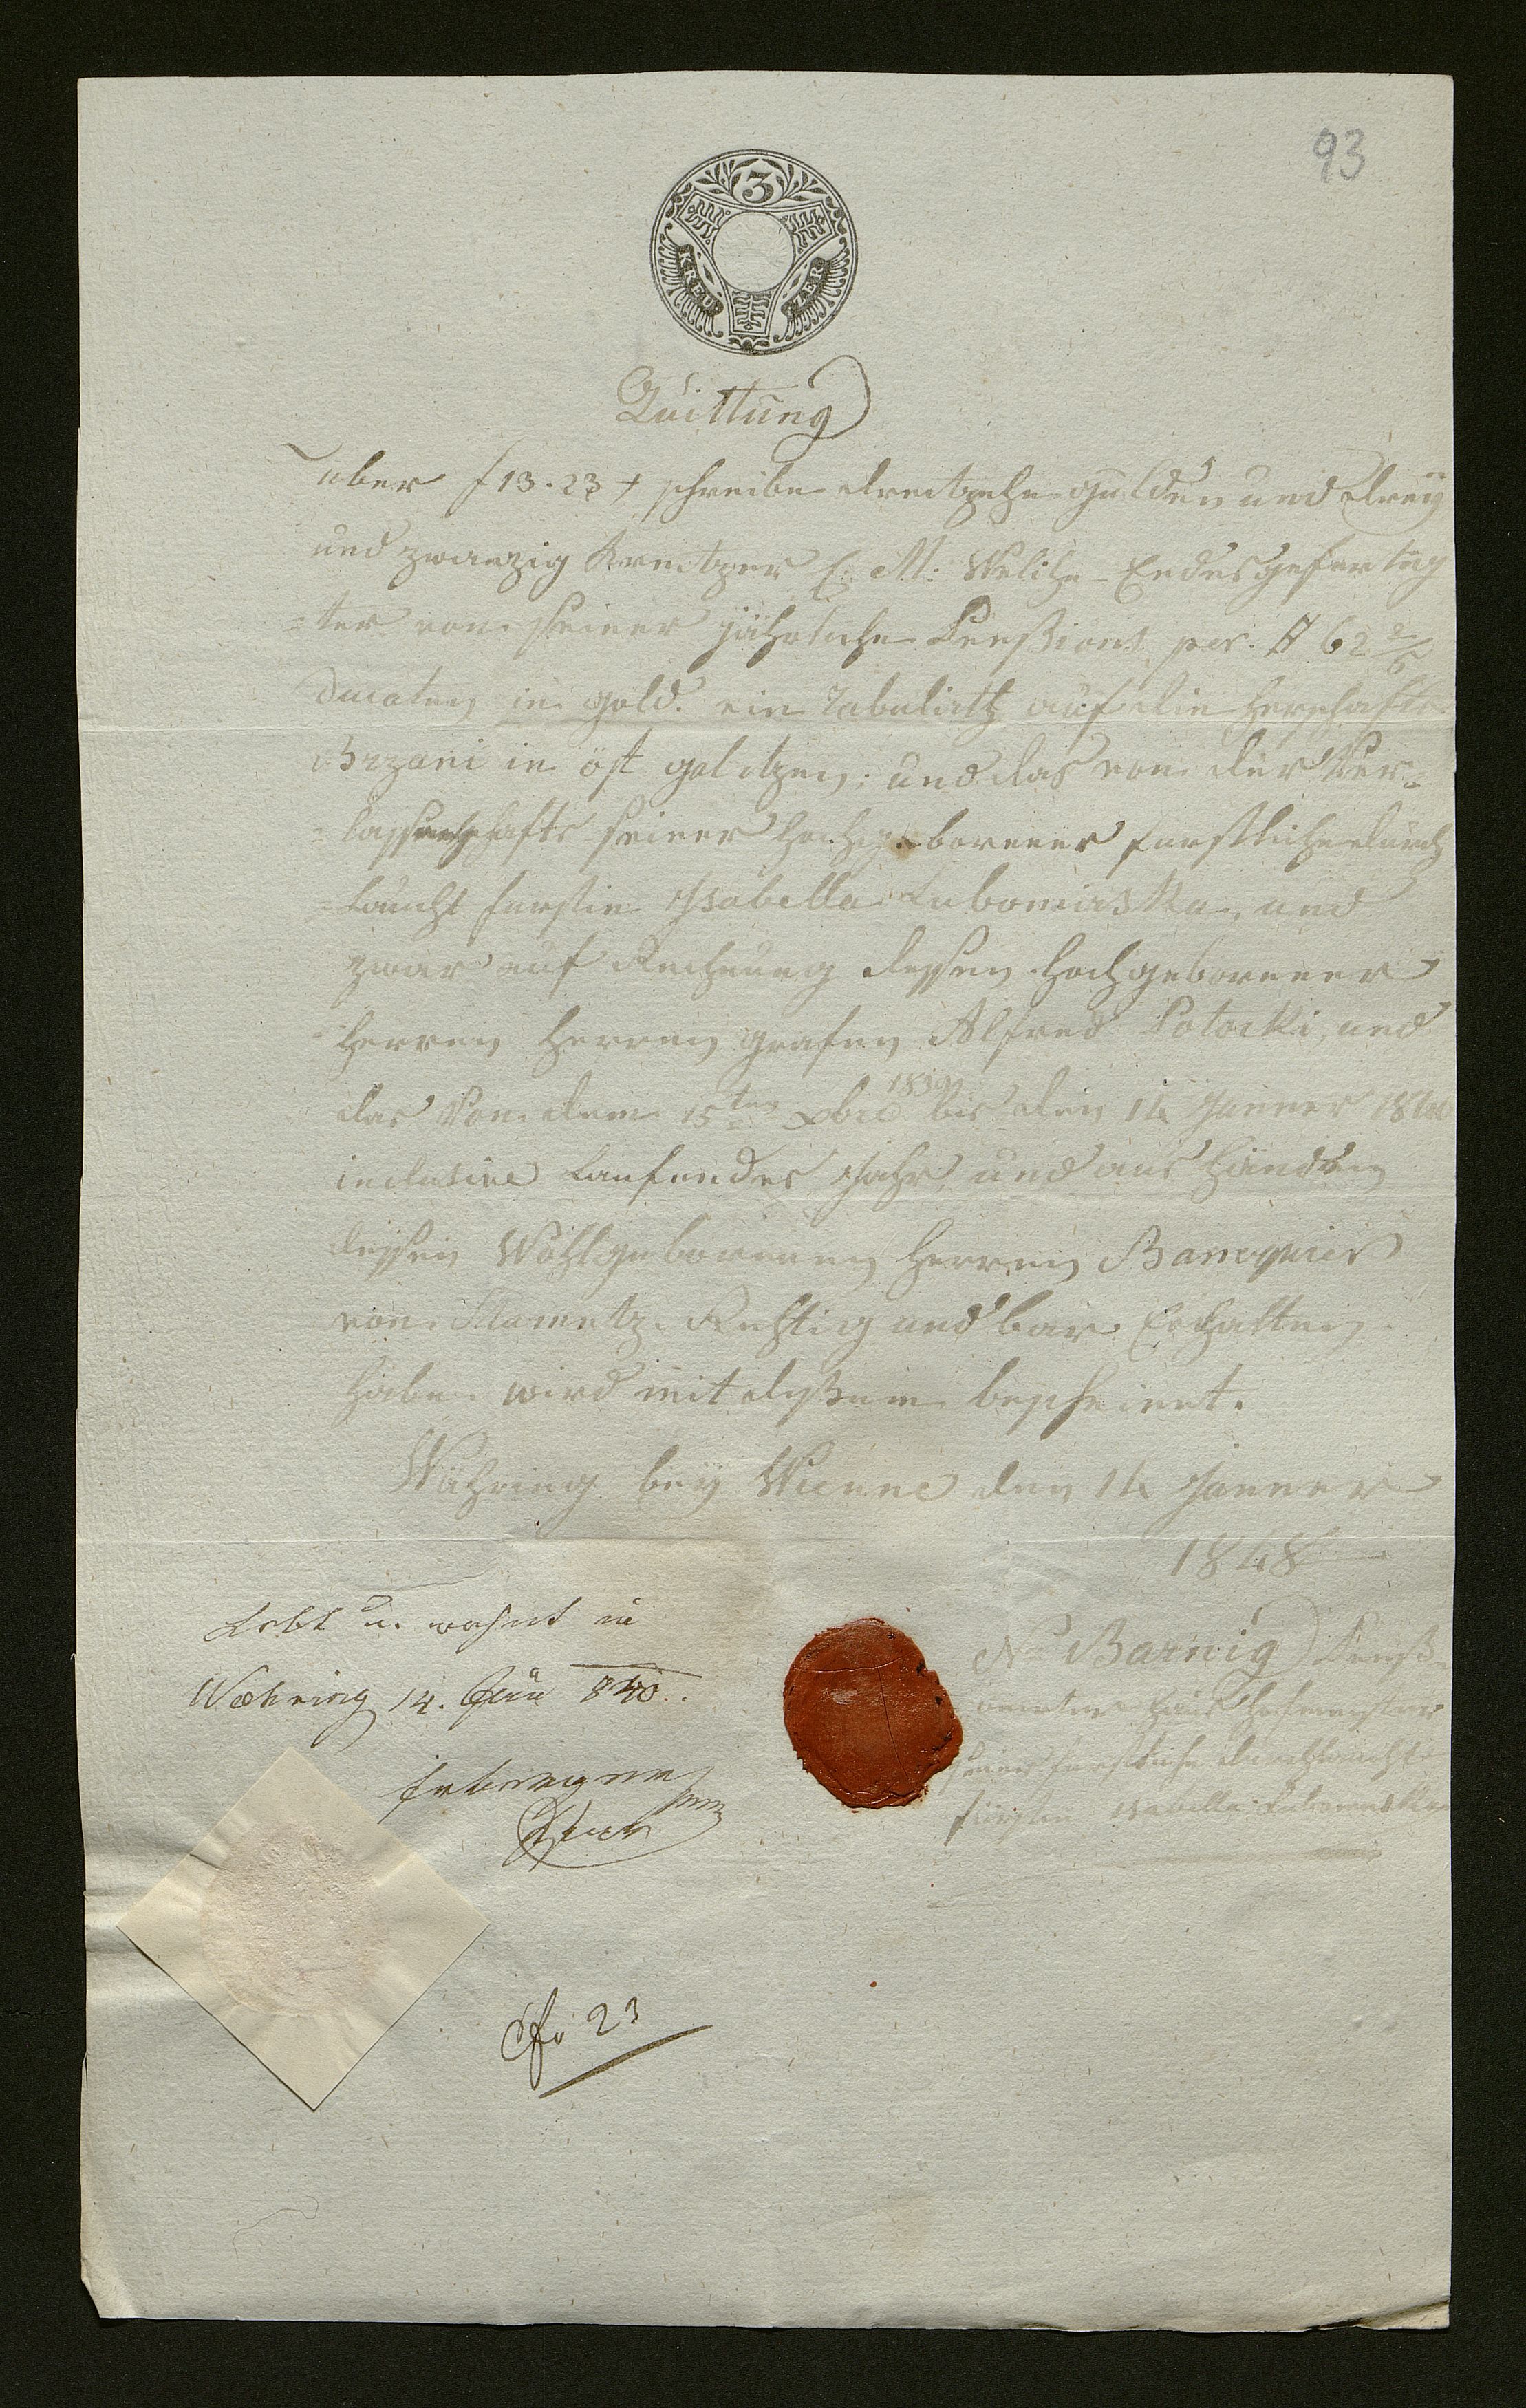 93
3
KREU ZER
Quittung
über f 13. 23 x schreibe dreitzehn gulden und dreÿ
und zwanzig Kreitzer C: M: Welche Endesgefertig
=ter von seiner jährliche Penßions per. # 62 2/6
Ducaten in gold. ein Tabulirtt auf die Herschafts
Brzani in öst galitzien: und das von der Ver=
=lassenschafts seiner hochgeborener furstliche durch
=laucht furstin Isabella Lubomirska, und
zwar auf Rechnung dessen hochgeborener
Herren Herren grafen Alfred Potocki, und
das Von dem 15ten xbre 1839 bis den 14 Janner 1840
inclusive laufendes Jahr, und aus händen
dessen Wohlgeborenen Herren Banquier
von Stametz Richtig und bar Erhalten
haben wird mit dißem bescheint.
Währing beÿ Wienne den 14 Janner
1848
N Barnig Penß
Haus hofmeister
seiner furstliche durchlaucht
fürstin Isabella Lubomirska
Lebt u. wohnt in
Waehring 14. Jän 840.
fr 23